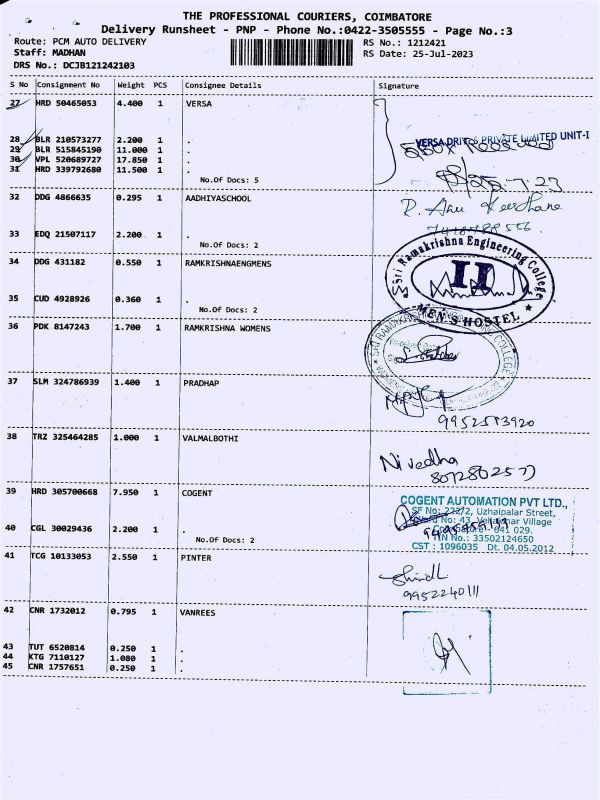 THE PROFESSIONAL COURIERS, COIMBATORE
Delivery Runsheet - PNP - Phone No.:0422-3505555 - Page No.:3
Route: PCM AUTO DELIVERY
RS No.: 1212421
Staff: MADHAN
RS Date: 25-Jul-2023
DRS No.: DCJB121242103
S No Consignment No Weight PCS Consignee Details Signature
27 HRD 50465053 4.400 1 VERSA
28 BLR 210573277 2.200 1 .
VERSA DRIVES PRIVATE LIMITED UNIT-I
29 BLR 515845190 11.000 1 .
30 VPL 520689727 17.850 1 .
31 HRD 339792680 11.500 1 .
No.Of Docs: 5
32 DDG 4866635 0.295 1 AADHIYASCHOOL
33 EDQ 21507117 2.200 1 .
No.Of Docs: 2
34 DDG 431182 0.550 1 RAMKRISHNAENGMENS
Sri Ramakrishna Engineering College
II
MEN'S HOSTEL
35 CUD 4928926 0.360 1 .
No.Of Docs: 2
36 PDK 8147243 1.700 1 RAMKRISHNA WOMENS
37 SLM 324786939 1.400 1 PRADHAP
9952513920
38 TRZ 325464285 1.000 1 VALMALBOTHI
Nivedha
39 HRD 305700668 7.950 1 COGENT
COGENT AUTOMATION PVT LTD.,
SF No: 222/2, Uzhaipalar Street,
No: 43, Village
641 029.
TIN No.: 33502124650
CST : 1096035 Dt. 04.05.2012
40 CGL 30029436 2.200 1 .
No.Of Docs: 2
41 TCG 10133053 2.550 1 PINTER
9952240111
42 CNR 1732012 0.795 1 VANREES
43 TUT 6520814 0.250 1 .
44 KTG 7110127 1.080 1 .
45 CNR 1757651 0.250 1 .